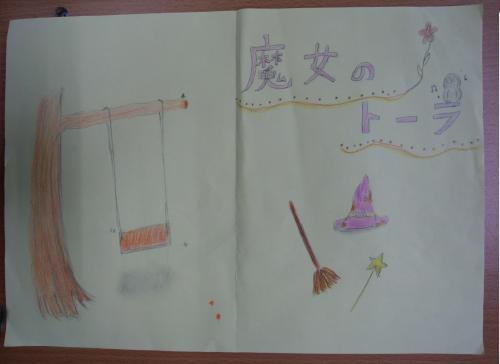 魔女の
トーラ